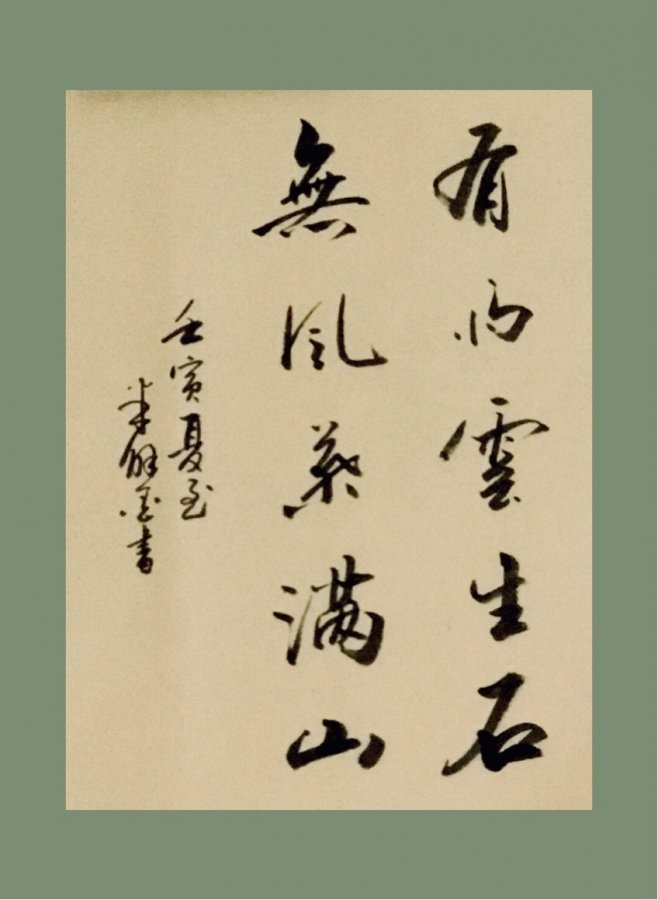 有雨雲生石
無風葉滿山
壬寅夏至
書